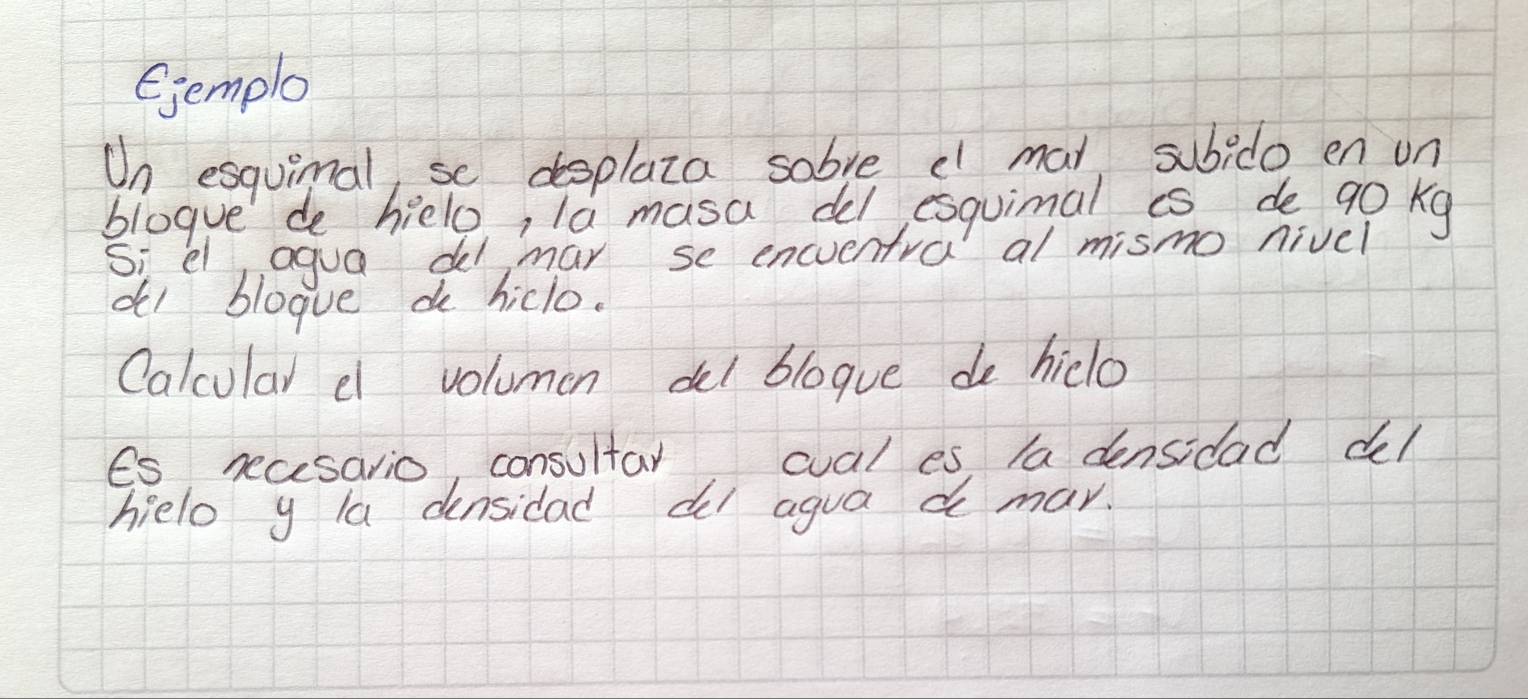 Ejemplo
Un esquimal, se desplaza sobre el mar, subido en un
bloque de hielo, la masa del esquimal es de 90 Kg
Si el agua del mar se encuentra al mismo nivel
del bloque de hielo.
Calcular el volumen del bloque de hielo
Es necesario consultar cual es la densidad del
hielo y la densidad del agua de mar.